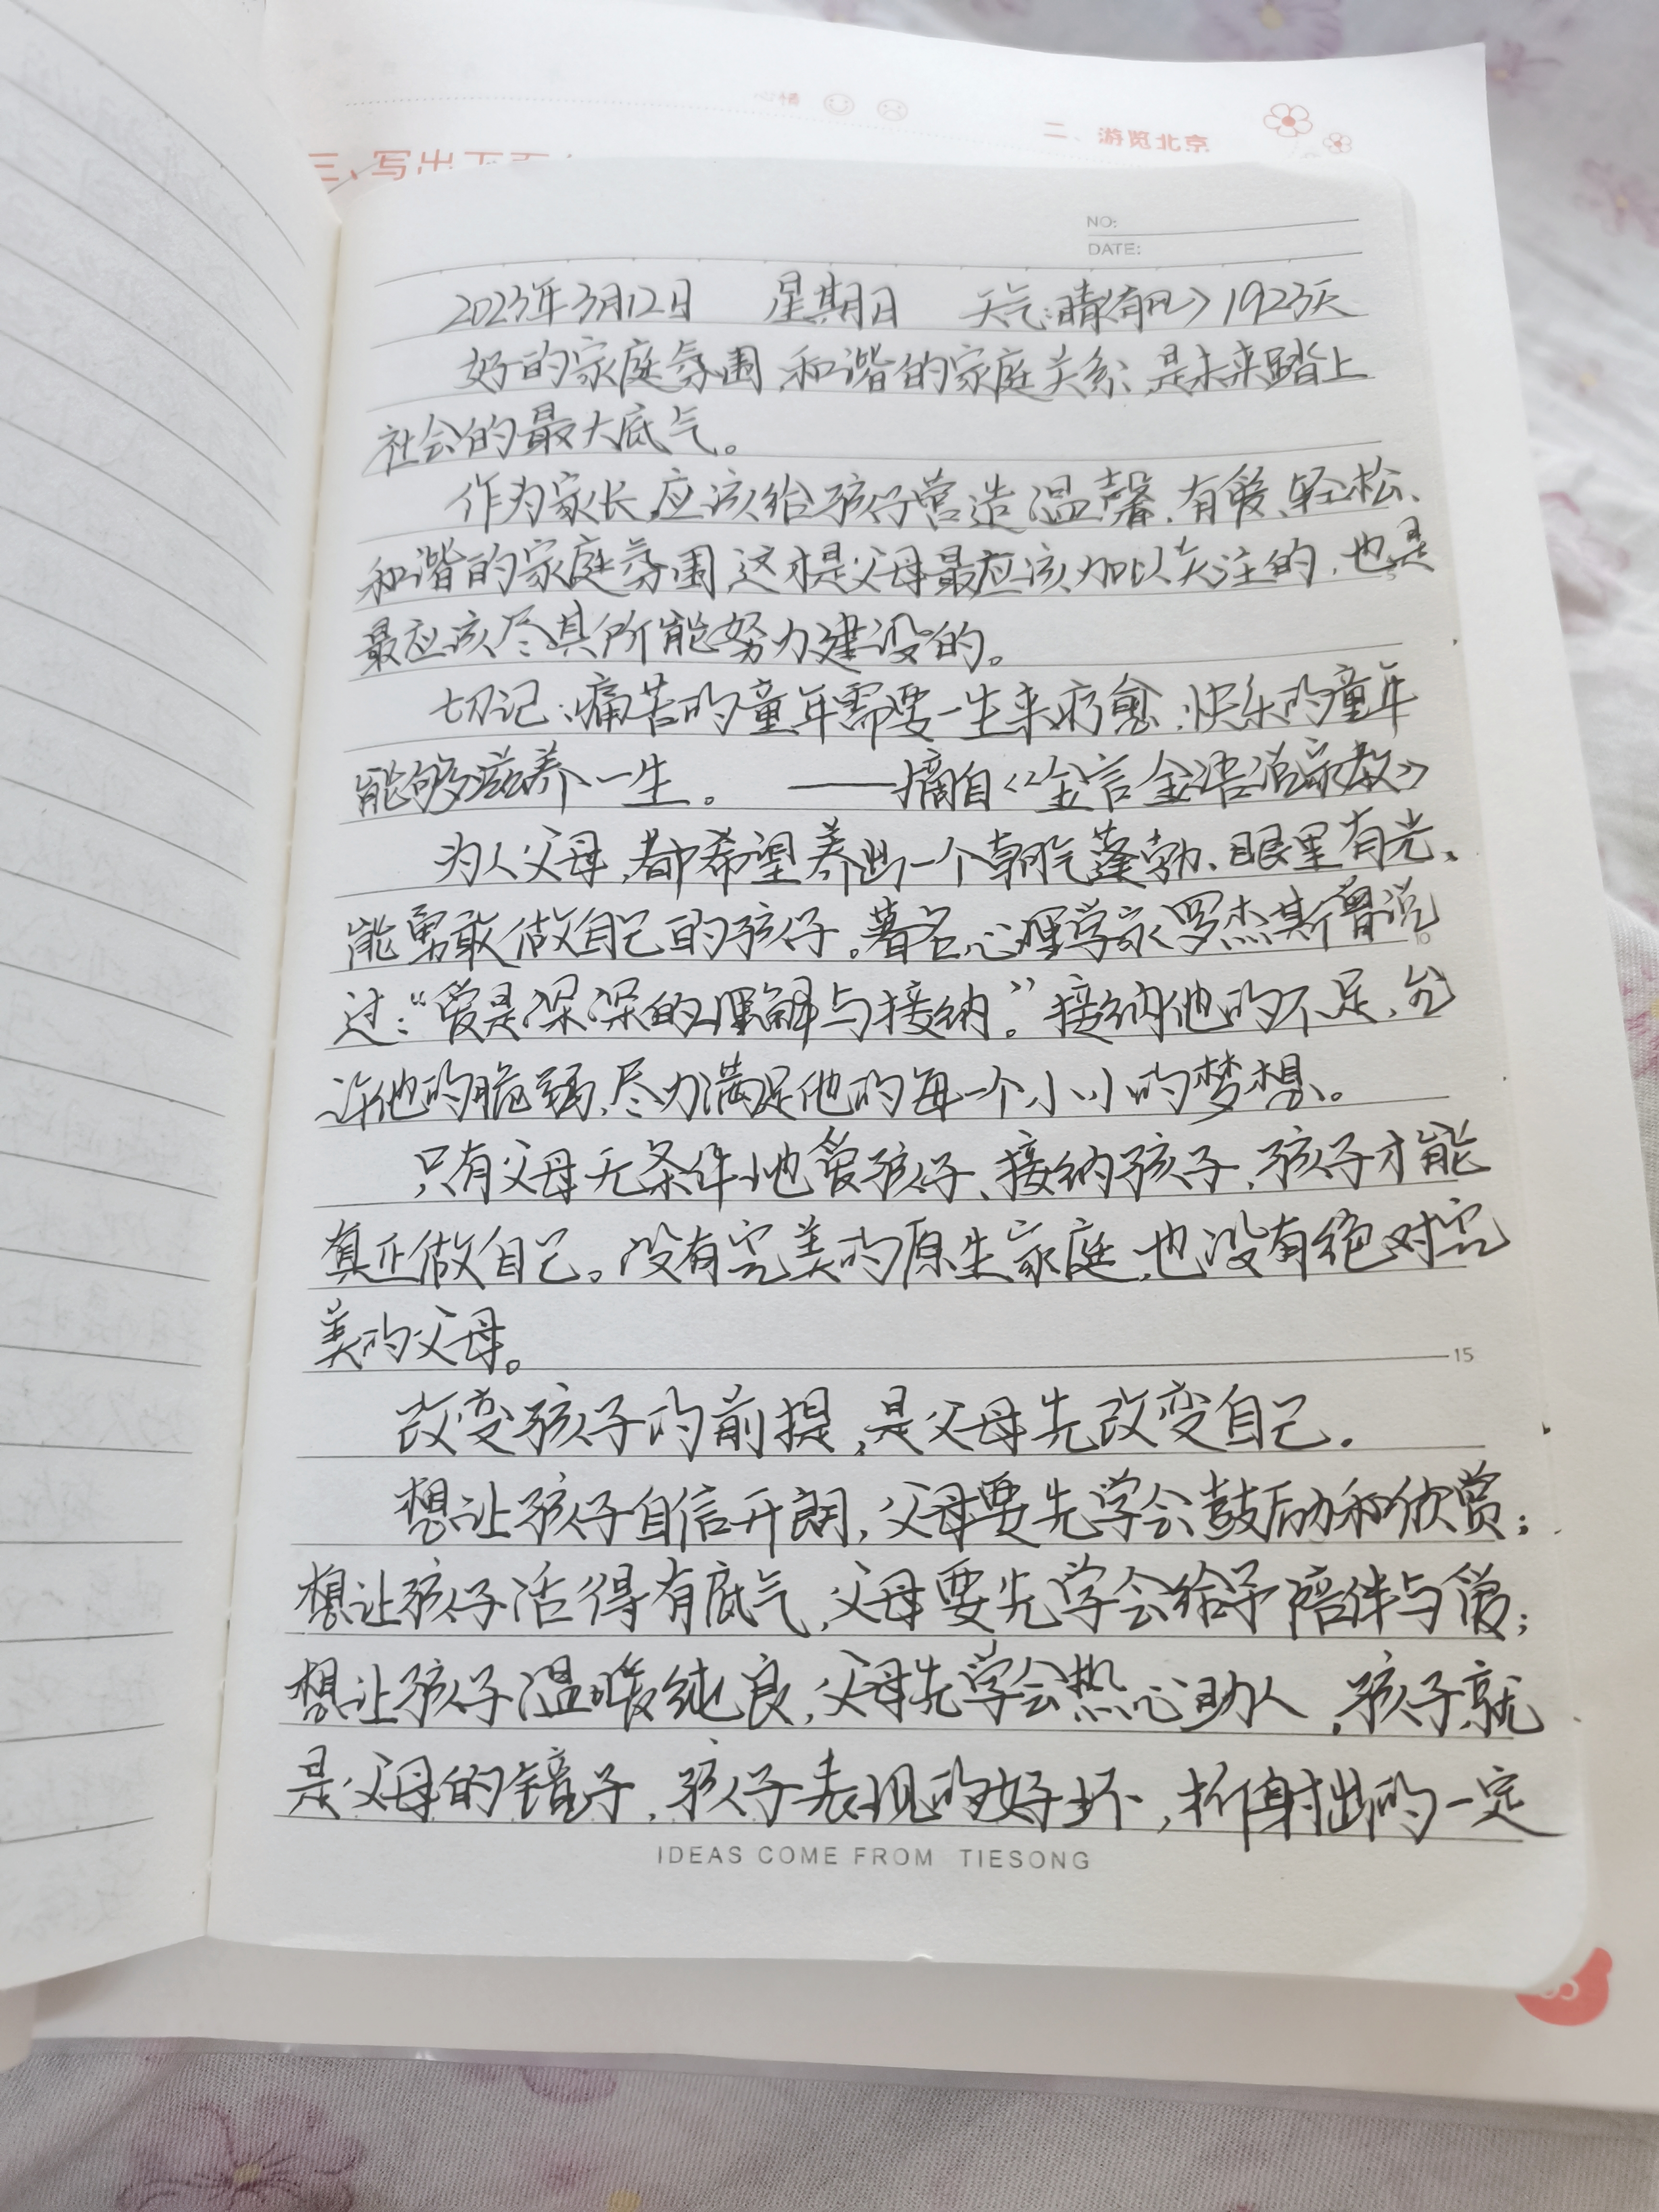 二、游览北京
三、写出下面
NO:
DATE:
2023年3月12日 星期日 天气:晴(有风) 1923天
好的家庭氛围、和谐的家庭关系、是未来踏上
社会的最大底气。
作为家长,应该给孩子营造温馨、有爱、轻松、
和谐的家庭氛围,这才是父母最应该加以关注的,也是
最应该尽其所能努力建设的。
切记:痛苦的童年需要一生来疗愈,快乐的童年
能够滋养一生。 ——摘自《金言金语说家教》
为人父母,都希望养出一个朝气蓬勃、眼里有光、
能勇敢做自己的孩子。著名心理学家罗杰斯曾说
过:“爱是深深的理解与接纳。”接纳他的不足,允
许他的脆弱,尽力满足他的每一个小小的梦想。
只有父母无条件地爱孩子、接纳孩子,孩子才能
真正做自己。没有完美的原生家庭,也没有绝对完
美的父母。
15
改变孩子的前提,是父母先改变自己.
想让孩子自信开朗,父母要先学会鼓励和欣赏;
想让孩子活得有底气,父母要先学会给予陪伴与爱;
想让孩子温暖纯良,父母先学会热心助人,孩子就
是父母的镜子,孩子表现的好坏,折射出的一定
IDEAS COME FROM TIESONG